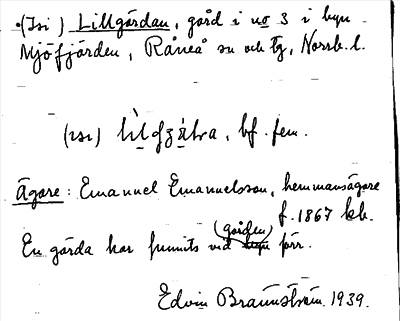 (Isi) Lillgårdan, gård i no 3 i byn
Mjöfjärden, Råneå sn och tg, Norrb. l.
(ısı) , bf. fem.
Ägare: Emanuel Emanuelsson, hemmansägare
f. 1867 kb.
En gärda har funnits vid (gården) förr.
Edvin Brännström 1939.